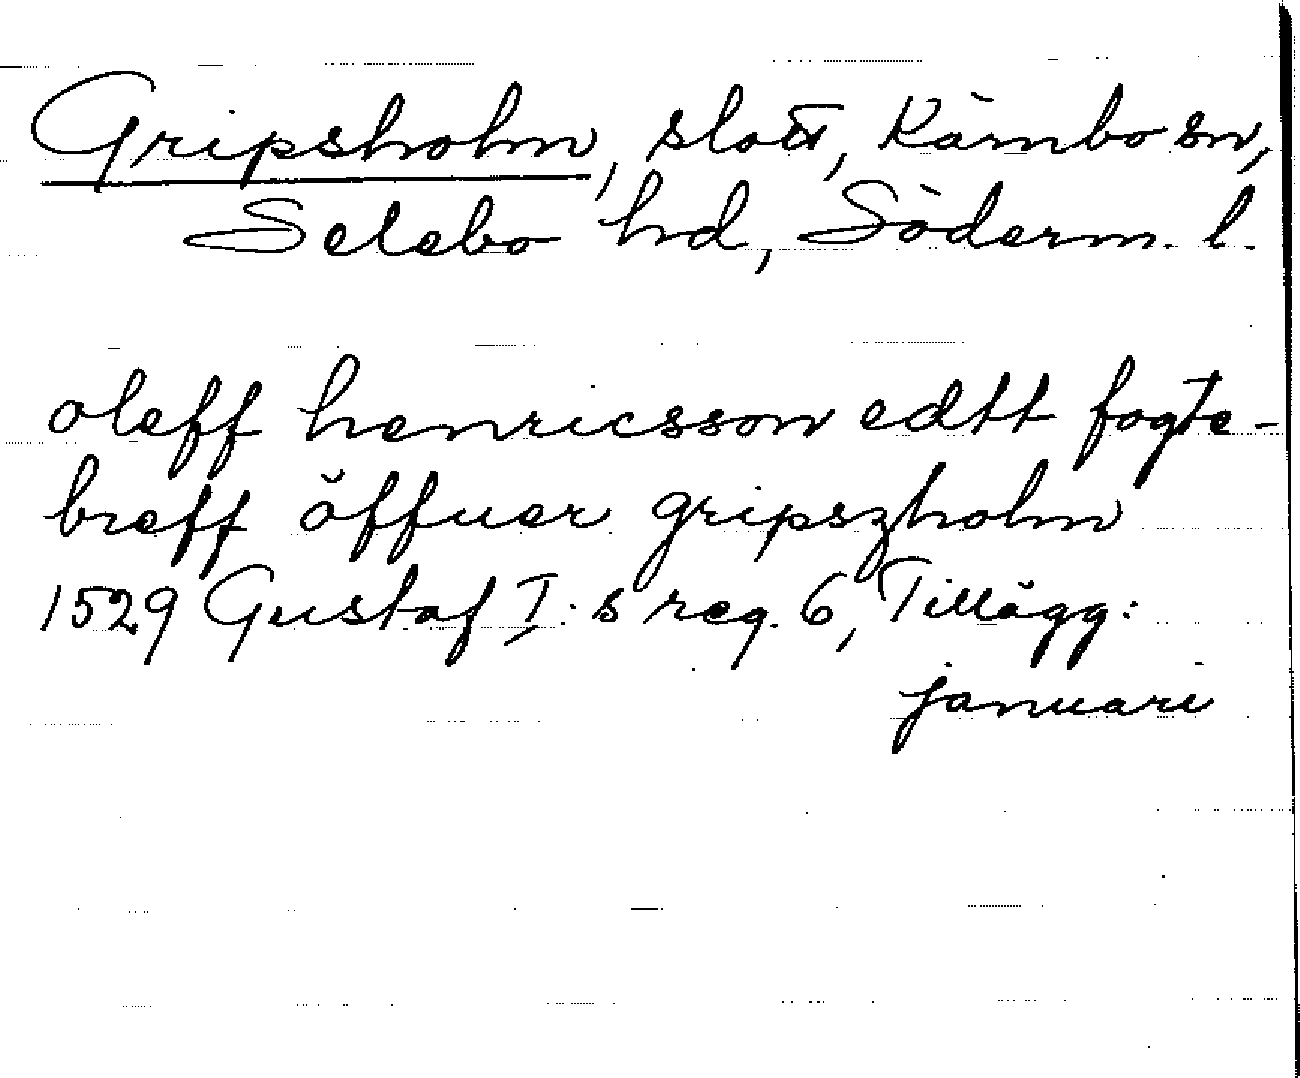 Gripsholm, slott, Kärnbo sn,
Selebo hd, Söderm. l.
oleff henricsson edtt fogte-
breff öffuer gripszholm
1529 Gustaf I:s reg. 6, Tillägg:
januari